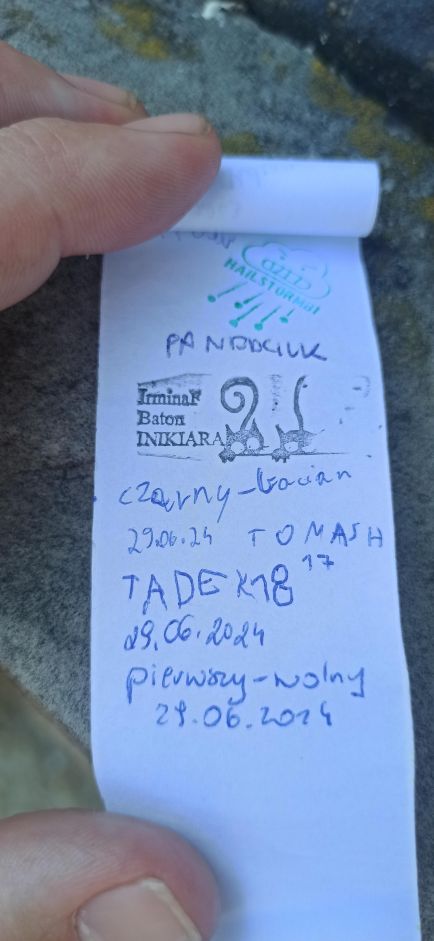 HAILSTORM81
IrminaF
Baton
INIKIARA
czarny-bocian
29.06.24 TOMASH
TADEK18 17
29.06.2024
pierwszy-wolny
29.06.2024